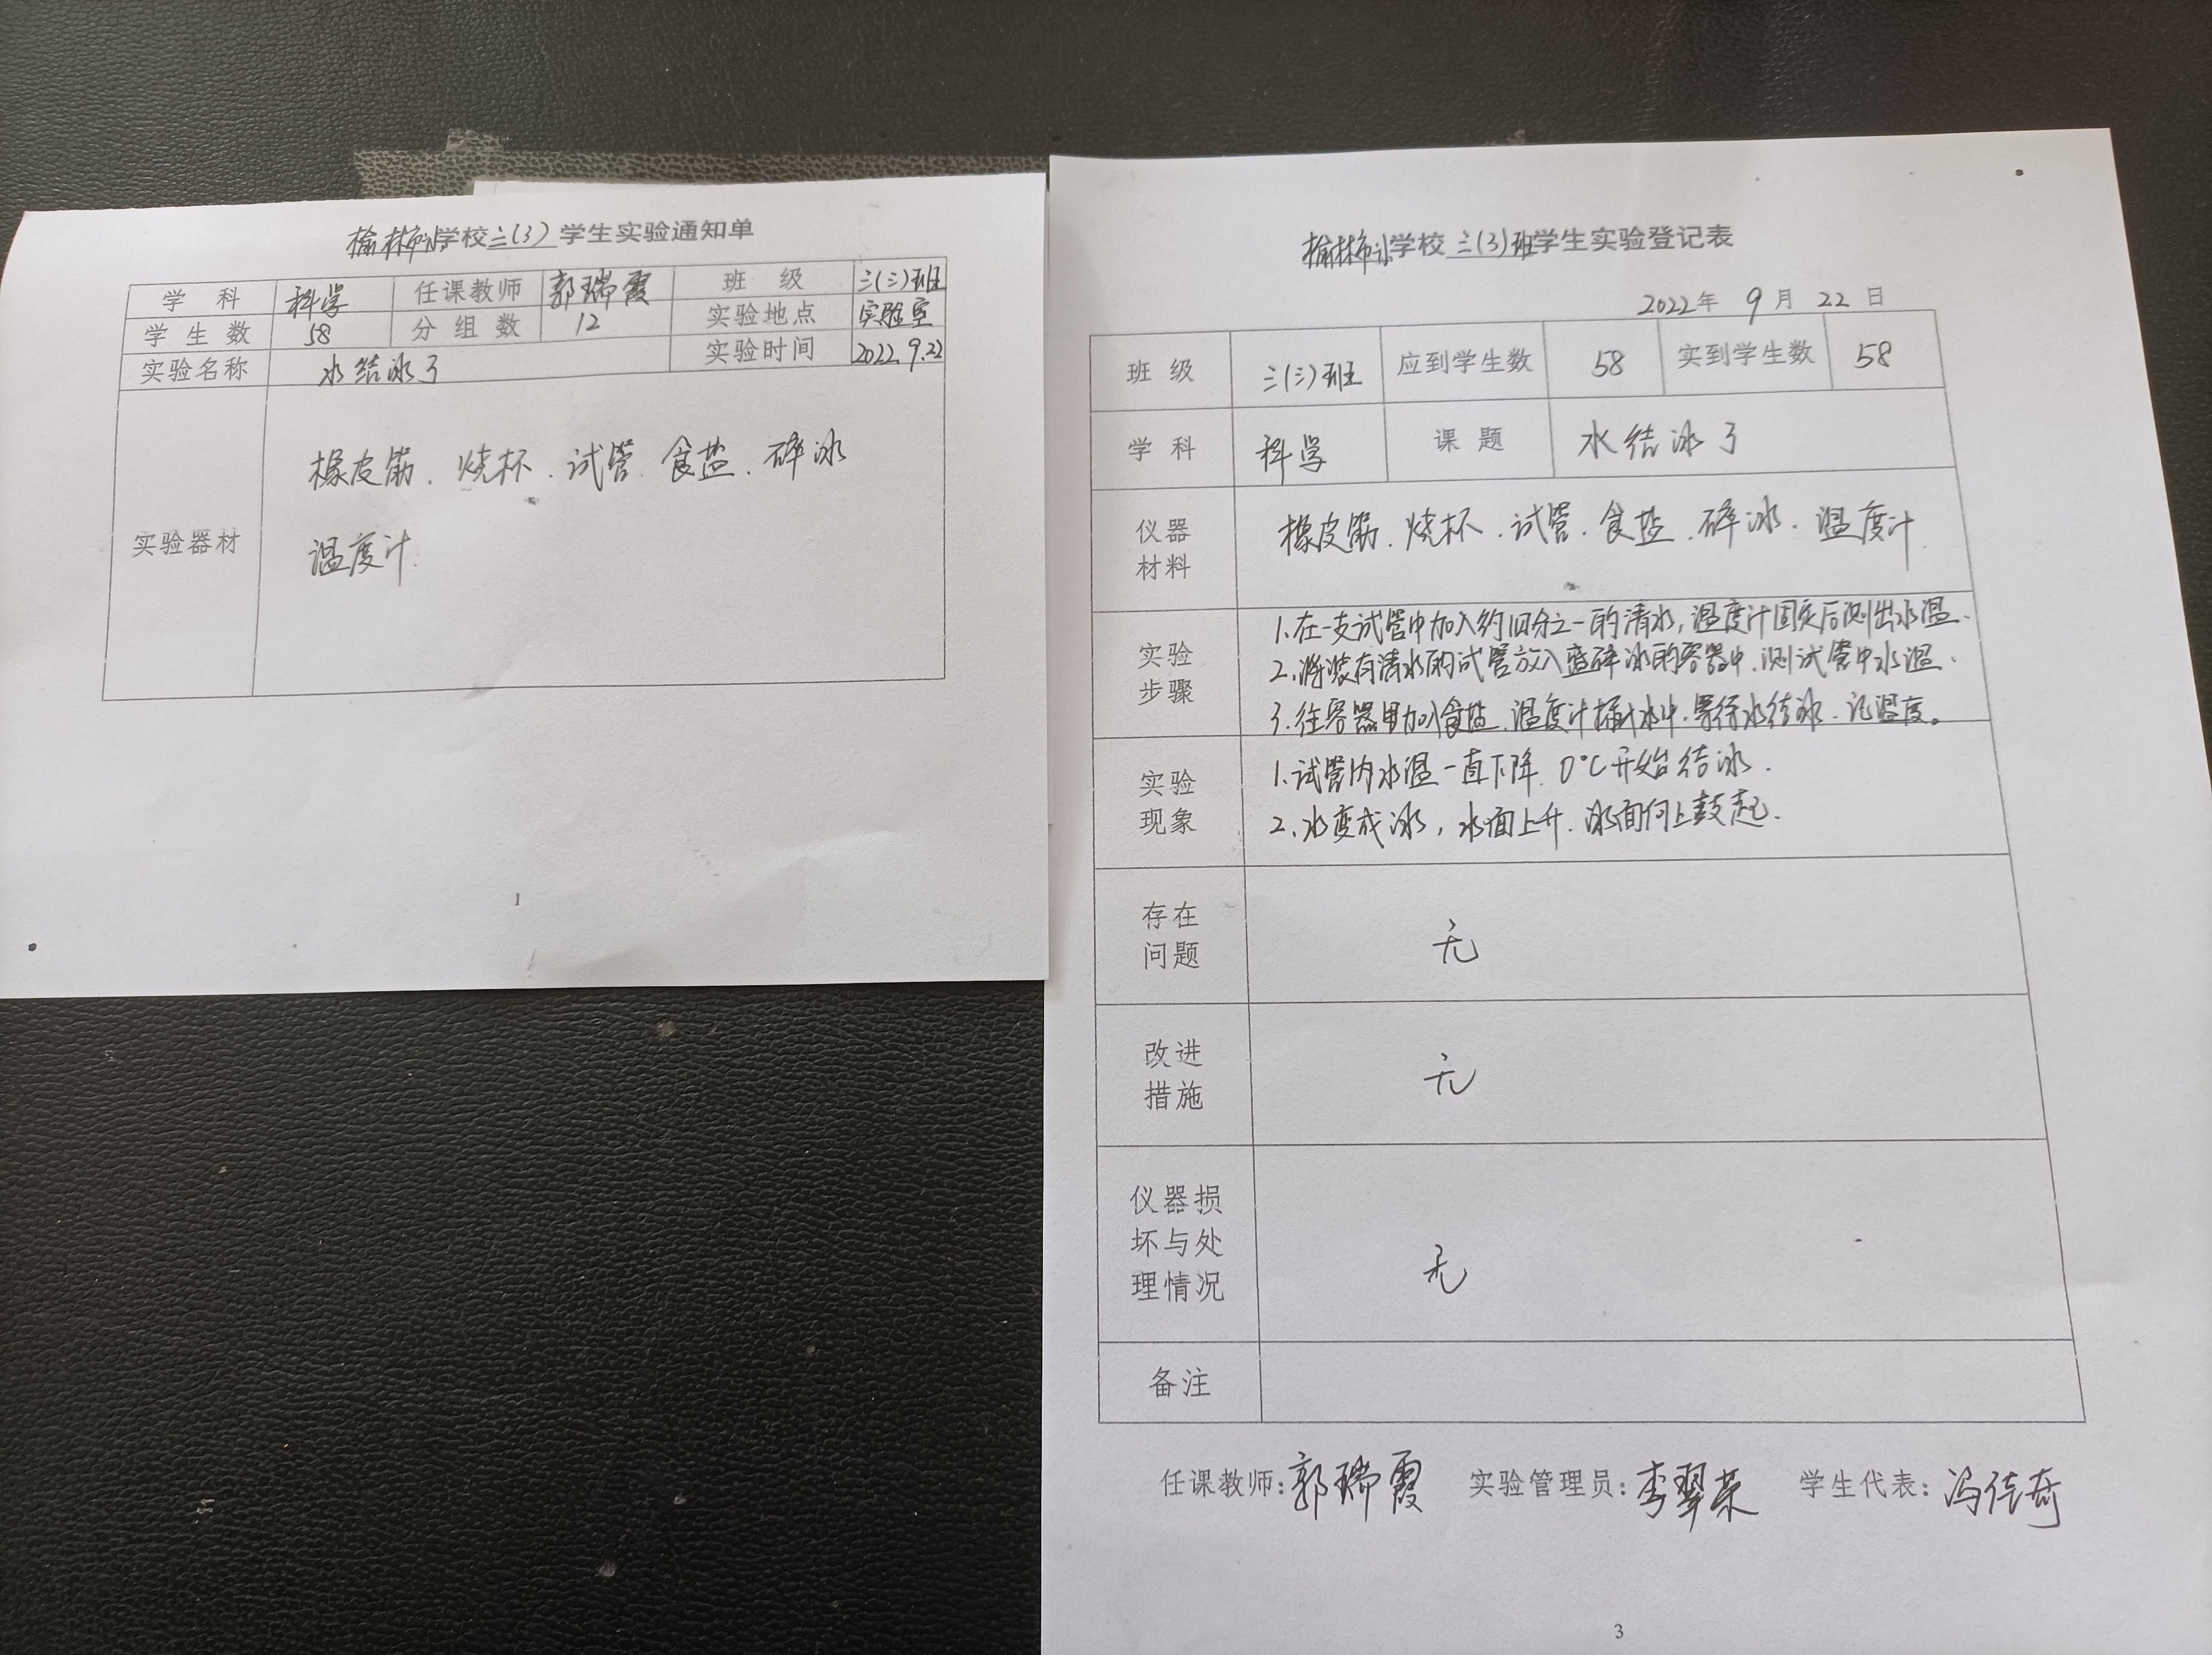 榆林市小学校三(3)学生实验通知单
学 科 科学 任课教师 郭瑞霞 班 级 三(三)班
学 生 数 58 分 组 数 12 实验地点 实验室
实验名称 水结冰了 实验时间 2022.9.22
实验器材
橡皮筋、烧杯、试管、食盐、碎冰
温度计.
1
榆林市小学校三(3)班学生实验登记表
2022年 9月 22日
班 级 三(三)班 应到学生数 58 实到学生数 58
学 科 科学 课 题 水结冰了
仪器
材料
橡皮筋、烧杯、试管、食盐、碎冰、温度计.
实验
步骤
1.在一支试管中加入约四分之一的清水,温度计固定后测出水温.
2.将装有清水的试管放入盛碎冰的容器中.测试管中水温.
3.往容器里加入食盐.温度计插入水中.等待水结冰.记温度。
实验
现象
1.试管内水温一直下降.0℃开始结冰.
2.水变成冰,水面上升.冰面向上鼓起.
存在
问题
无
改进
措施
无
仪器损
坏与处
理情况
无
备注
任课教师:郭瑞霞 实验管理员:李翠荣 学生代表:冯佳奇
3